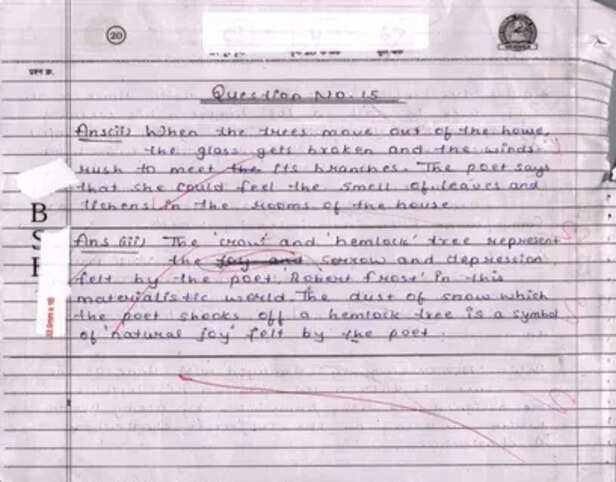 20
प्रश्न क्र.
Question No. 15
Ans(ii) When the trees move out of the house,
the glass gets broken and the winds
rush to meet the its branches. The poet says
that she could feel the smell of leaves and
lichens in the rooms of the house.
B
S
Ans (iii) The 'crow' and 'hemlock' tree represent
the joy and sorrow and depression
felt by the poet, 'Robert Frost' in this
materialistic world. The dust of snow which
the poet shooks off a hemlock tree is a symbol
of 'natural joy' felt by the poet.